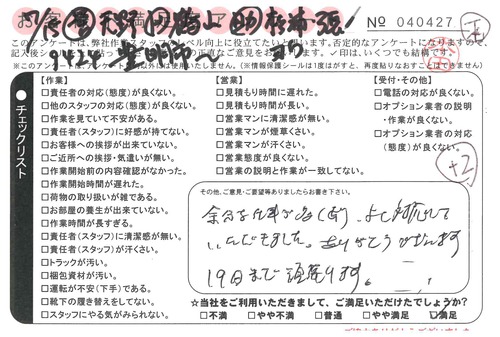 No 040427
このアンケートは、弊社作業スタッフのレベル向上に役立てたいと思います。否定的なアンケートになりますので、
※このアンケートは、
(※情報保護シールは1度はがすと、再度貼りなおすことはできません)
チェックリスト
【作業】
□責任者の対応(態度)が良くない。
□他のスタッフの対応(態度)が良くない。
□作業を見ていて不安がある。
□責任者(スタッフ)に好感が持てない。
□お客様への挨拶が出来ていない。
□ご近所への挨拶・気遣いが無い。
□作業開始前の内容確認がなかった。
□作業開始時間が遅れた。
□荷物の取り扱いが雑である。
□お部屋の養生が出来ていない。
□作業時間が長すぎる。
□責任者(スタッフ)に清潔感が無い。
□責任者(スタッフ)が汗くさい。
□トラックが汚い。
□梱包資材が汚い。
□運転が不安(下手)である。
□靴下の履き替えをしてない。
□スタッフにやる気がみられない。
【営業】
□見積もり時間に遅れた。
□見積もり時間が長い。
□営業マンに清潔感が無い。
□営業マンが煙草くさい。
□営業マンが汗くさい。
□営業態度が良くない。
□営業の説明と作業が一致してない。
【受付・その他】
□電話の対応が良くない。
□オプション業者の説明
・作業が良くない。
□オプション業者の対応
(態度)が良くない。
+2
その他、ご意見・ご要望等ありましたらお書き下さい。
いただきました。ありがとうございます
19日まで頑張ります。
☆当社をご利用いただきまして、ご満足いただけたでしょうか?
□不満 □やや不満 □普通 □やや満足 □満足